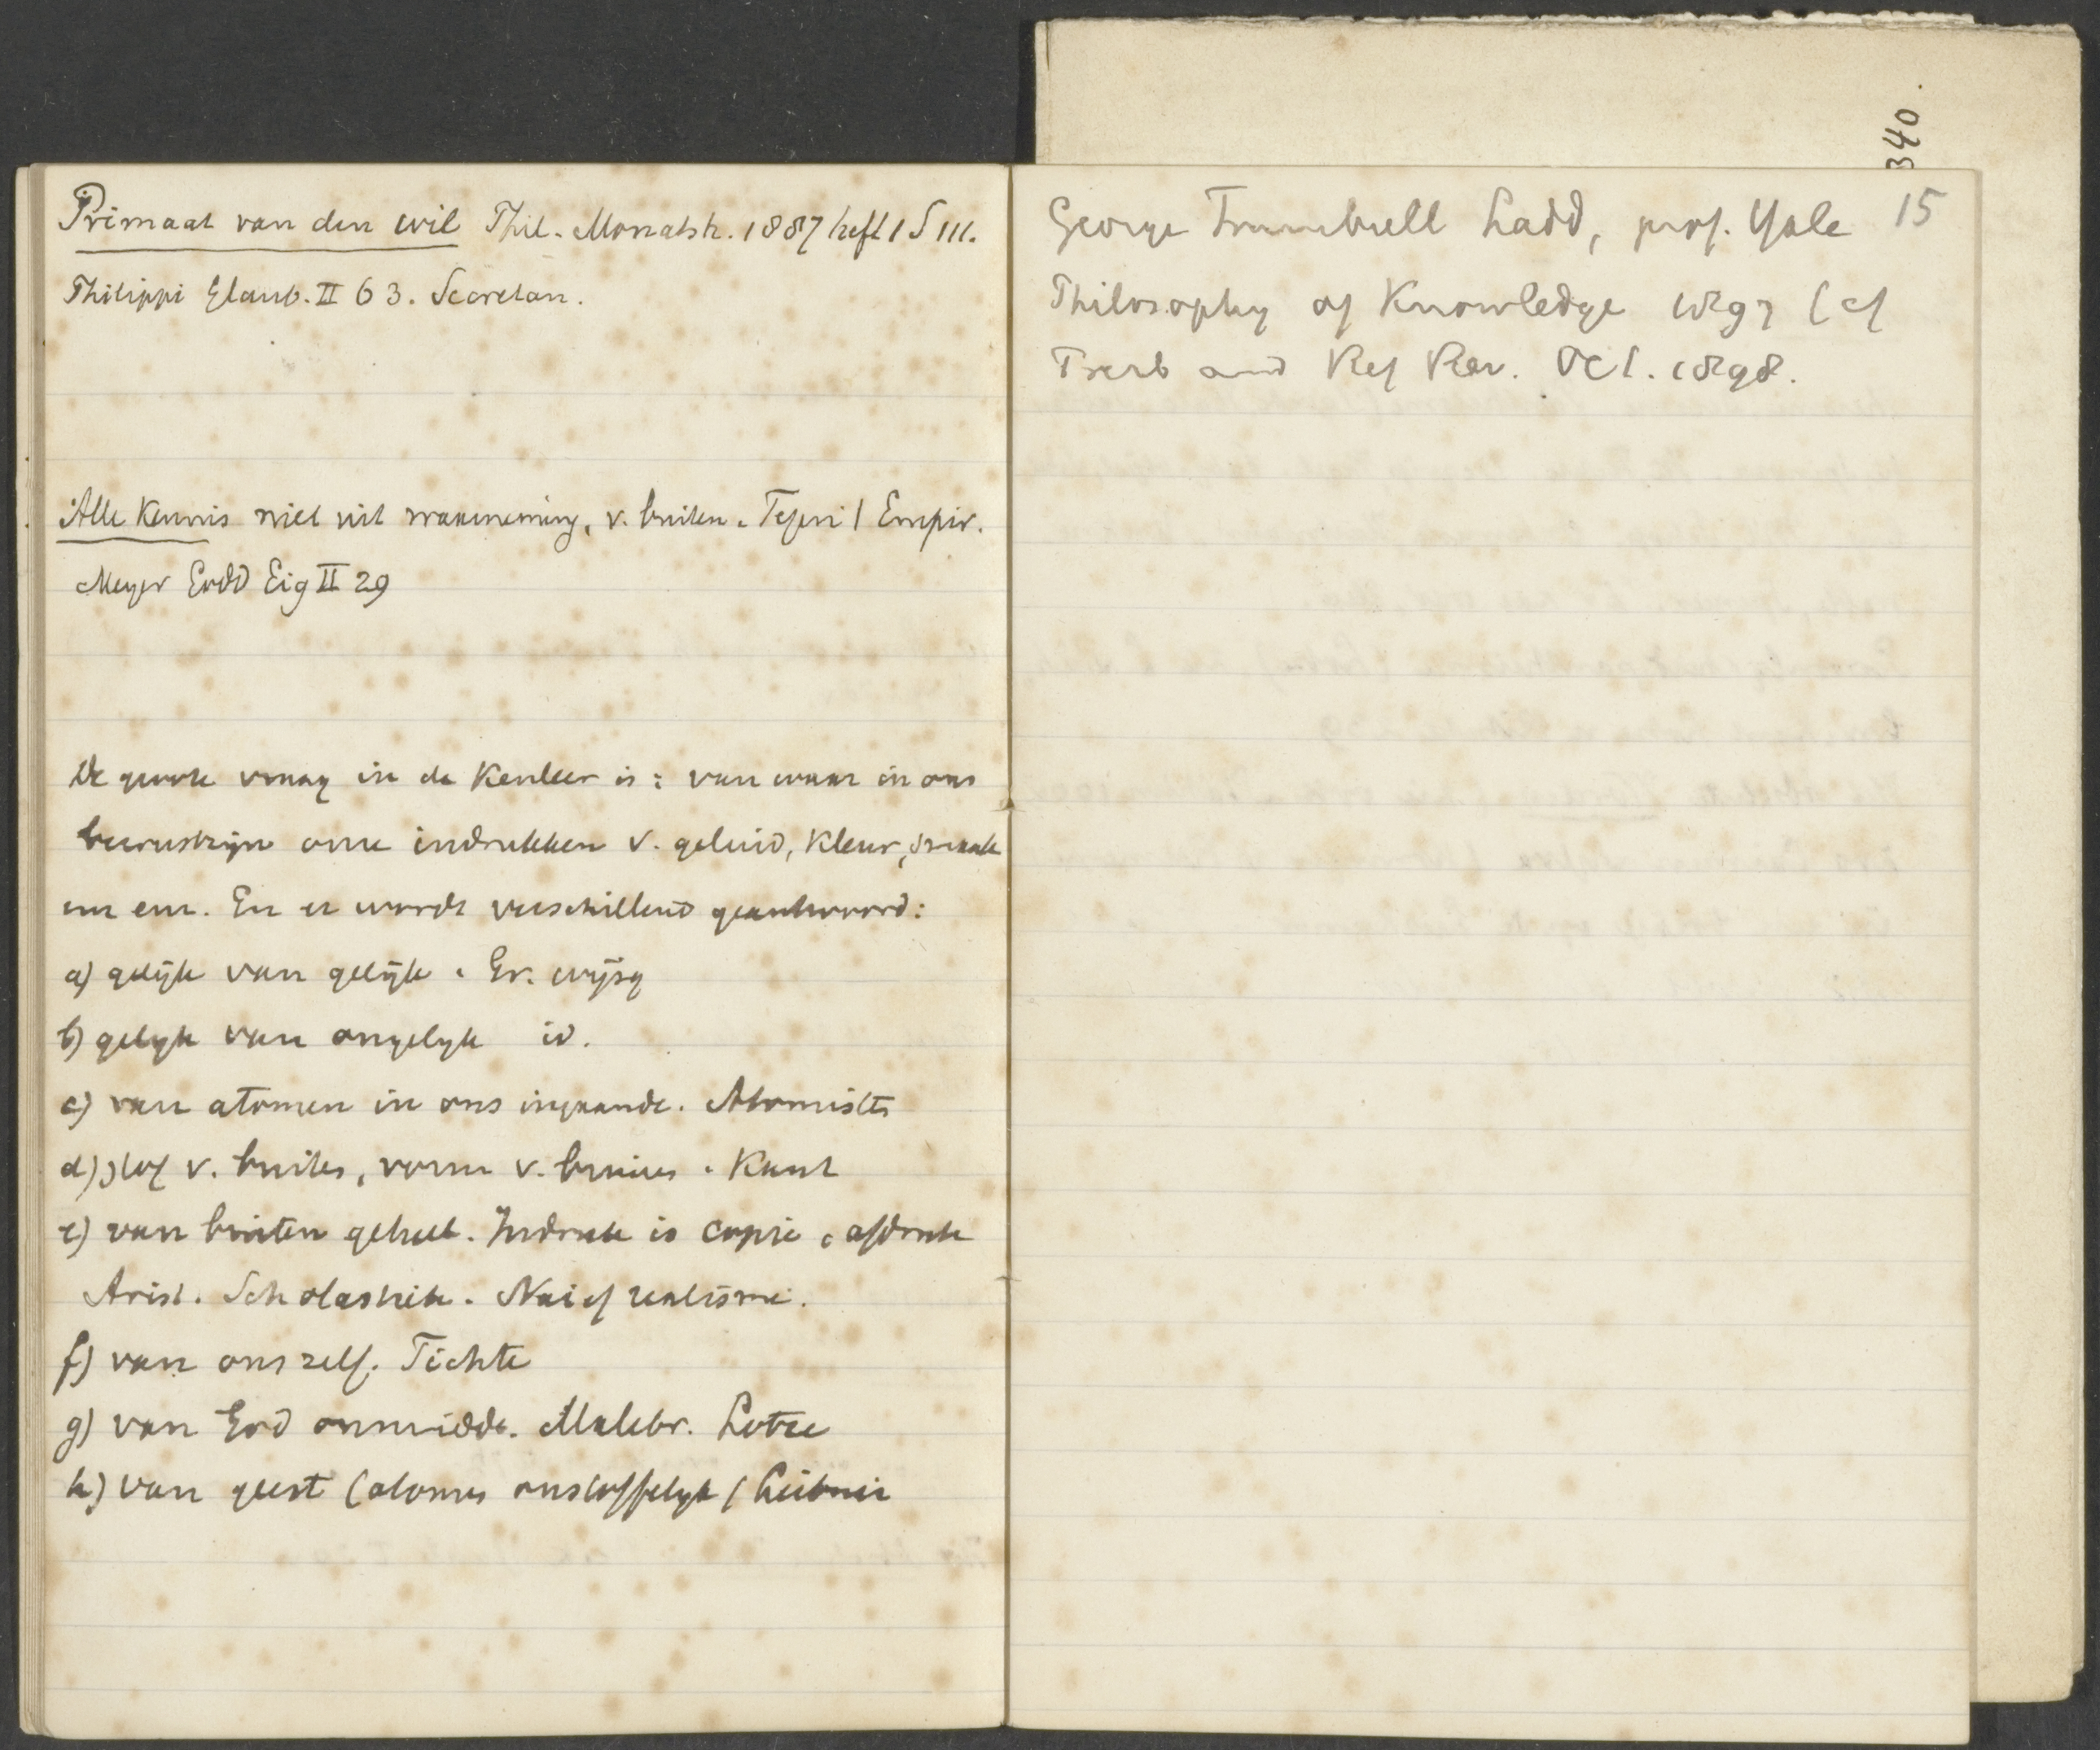 Primaat van den wil Phil. Monatsh. 1887 heft 1 S 111.
Philippi Glaub. II 63. Secretan.
Alle Kennis niet uit waarneming, v. buiten. Tegen 1 Empir.
Meyer Godd Eig II 29
De groote vraag in de Kenleer is: van waar in ons
bewustzijn onze indrukken v. geluid, kleur, smaak
enz enz. En er wordt verschillend geantwoord:
a) gelijk van gelijk. Gr. wijsg
b) gelyk van ongelyk id.
c) van atomen in ons ingaande. Atomisten
d) stof v. buiten, vorm v. binnen. Kant
e) van buiten geheel. Indruk is copie, afdruk
Arist. Scholastiek. Naief realisme.
f) van ons zelf. Fichte
g) van God onmidd. Malebr. Lotze
h) van geest (atomen onstoffelyk) Leibniz
340.
15
George Trumbull Ladd, prof. Yale
Philosophy of Knowledge 1897 (cf
Presb and Ref Rev. Oct. 1898.